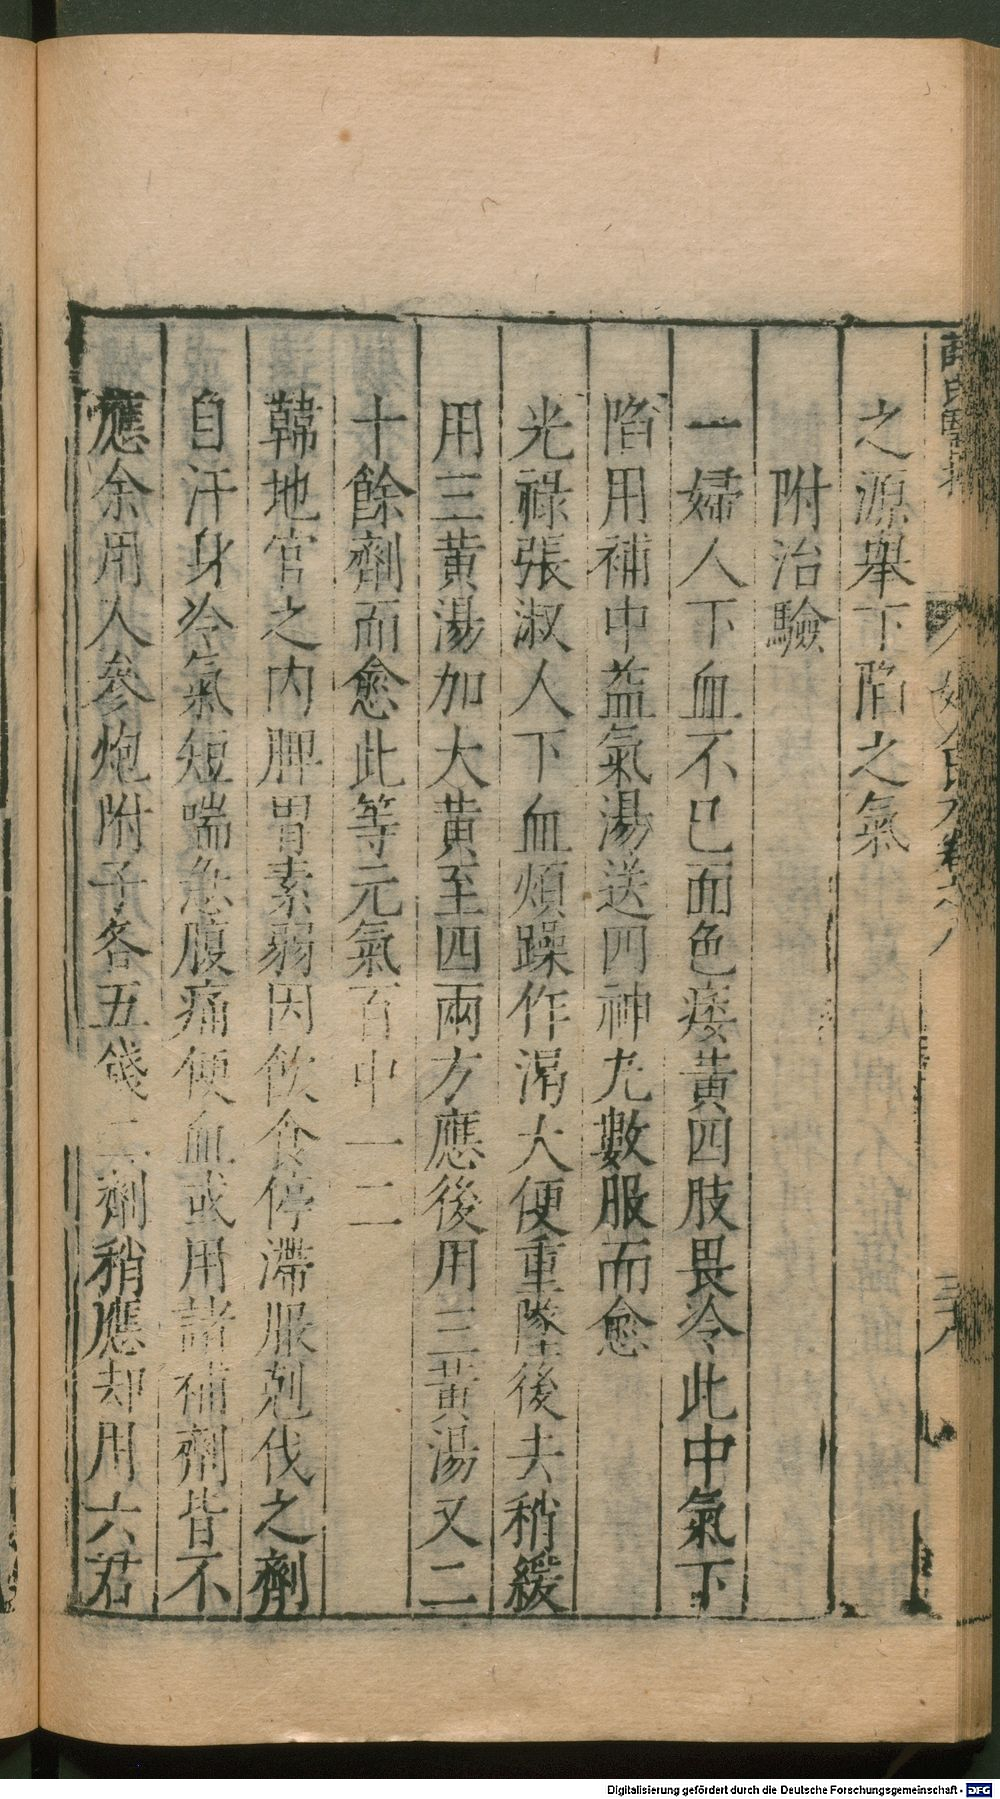 薛氏醫按
婦人良方卷八
三八
之源舉下陷之氣
附治驗
一婦人下血不已面色痿黃四肢畏冷此中氣下
陷用補中益氣湯送四神丸數服而愈
光祿張淑人下血煩躁作渴大便重墜後去稍緩
用三黃湯加大黃至四兩方應後用三黃湯又二
十餘劑而愈此等元氣百中一二
韓地官之內脾胃素弱因飲食停滯服剋伐之劑
自汗身冷氣短喘急腹痛便血或用諸補劑皆不
應余用人參炮附子各五錢二劑稍應却用六君
Digitalisierung gefördert durch die Deutsche Forschungsgemeinschaft - DFG